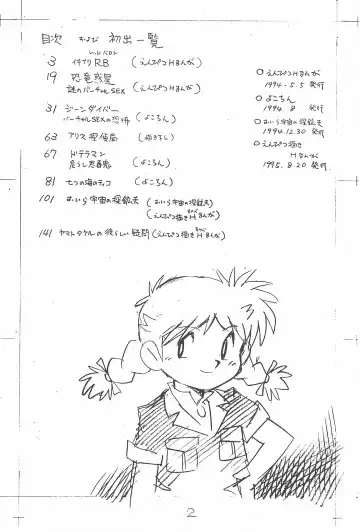 目次 および 初出一覧
レッドバロン
3 イキナリRB (えんぴつHまんが)
19 恐竜惑星
謎のバーチャルSEX (えんぴつHまんが)
31 ジーンダイバー
バーチャルSEXの恐怖 (よこちん)
63 アリス探偵局 (描き下し)
67 ドテラマン
(よこちん)
81 七つの海のティコ (よこちん)
101 おいら宇宙の探鉱夫 (おいら宇宙の探鉱夫)
(えんぴつ描きHまんが)
141 ヤマトタケルの彼らしい疑問 (えんぴつ描きHまんが)
○えんぴつHまんが
1994.5.5 発行
○よこちん
1994.8 発行
○おいら宇宙の探鉱夫
1994.12.30 発行
○えんぴつ描き
Hまんが
1995.8.20 発行
2